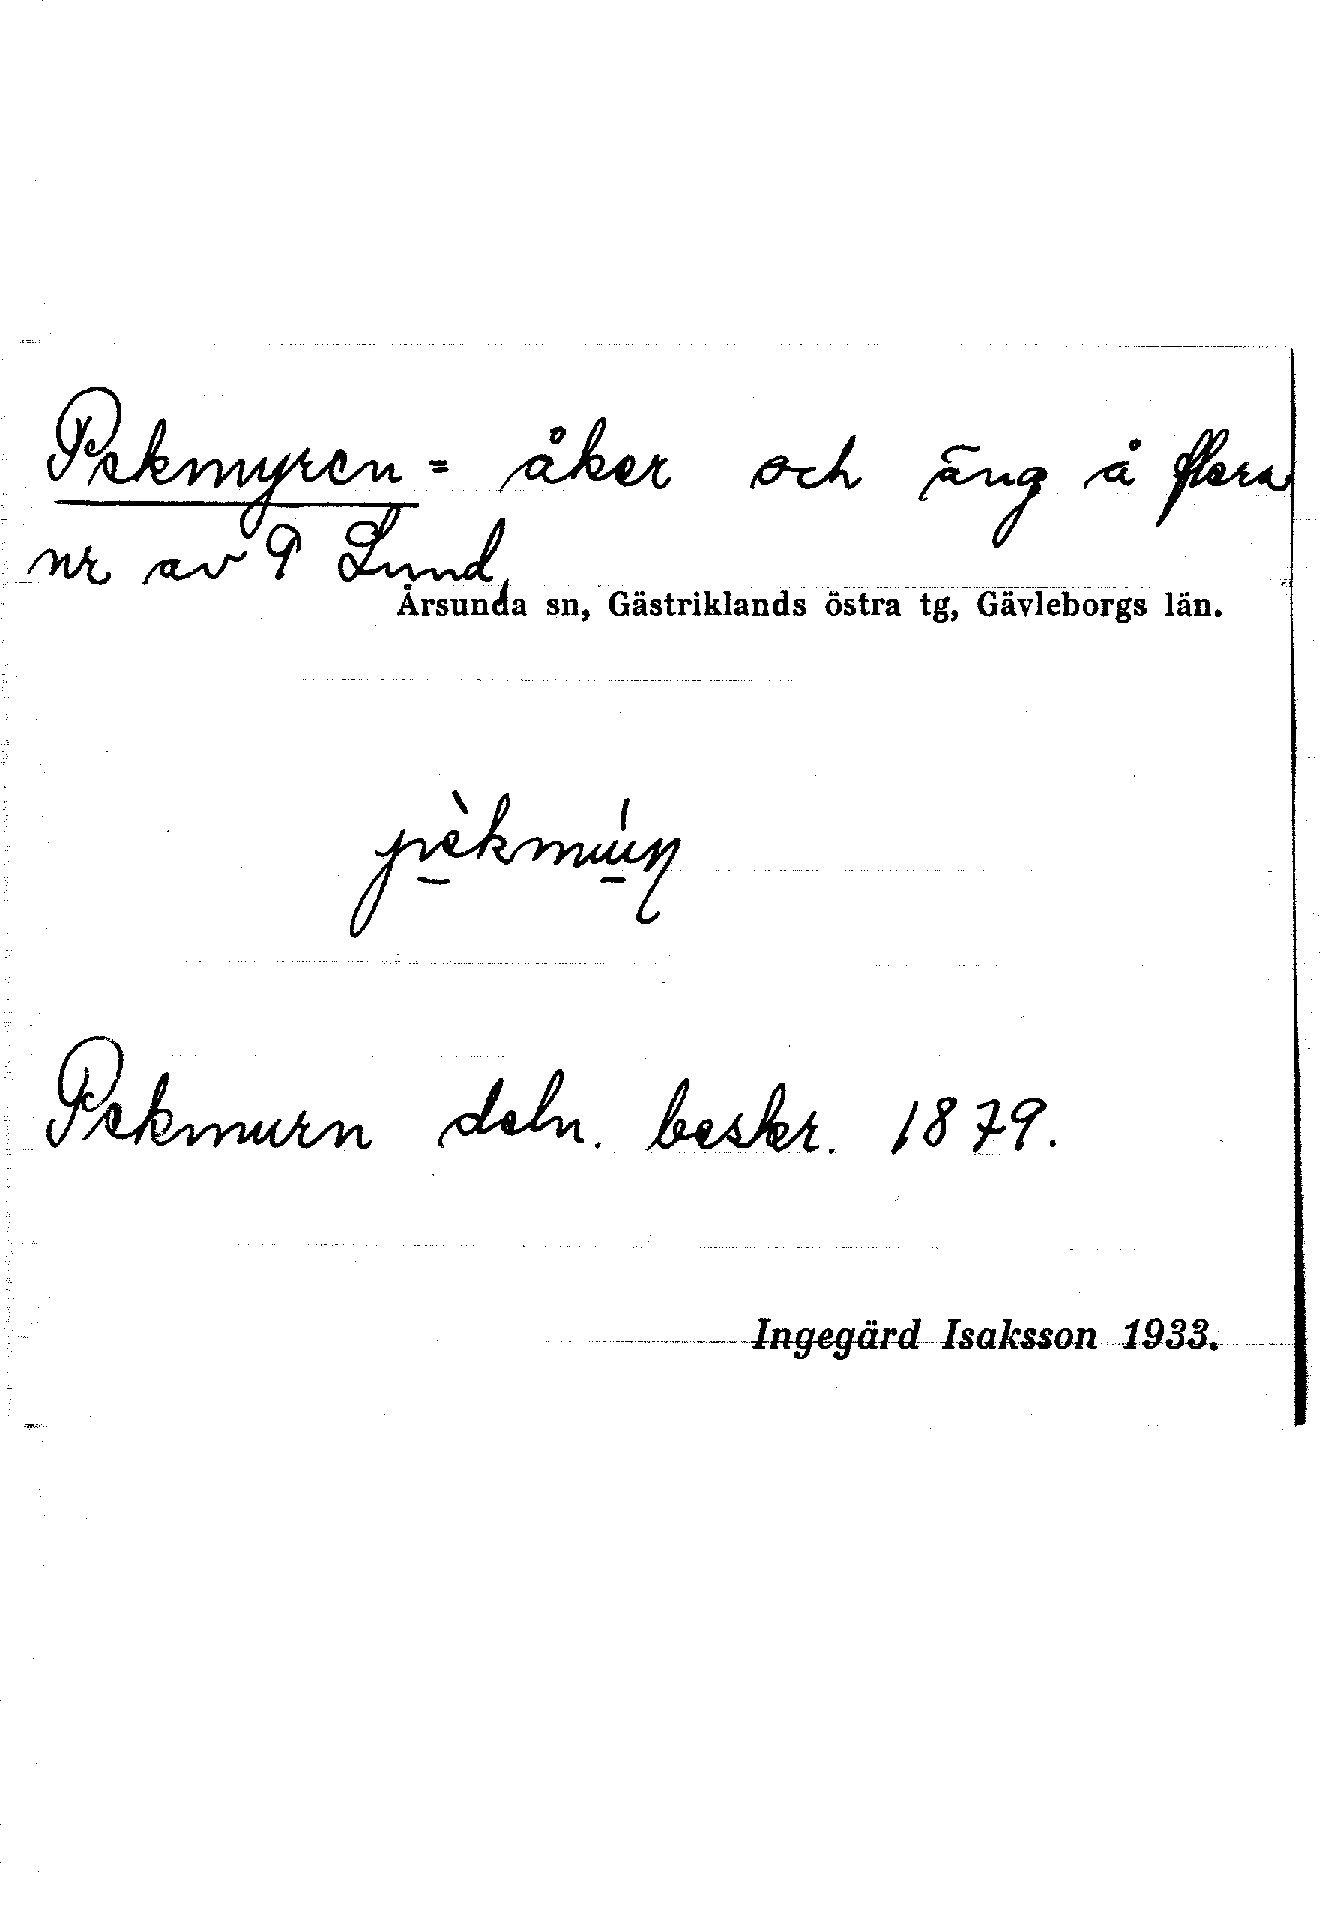 Pekmyren = åker och äng å flera
nr av P Lund
Årsunda sn, Gästriklands östra tg, Gävleborgs län.
Pekmurn deln. beskr. 1879.
Ingegärd Isaksson 1933.